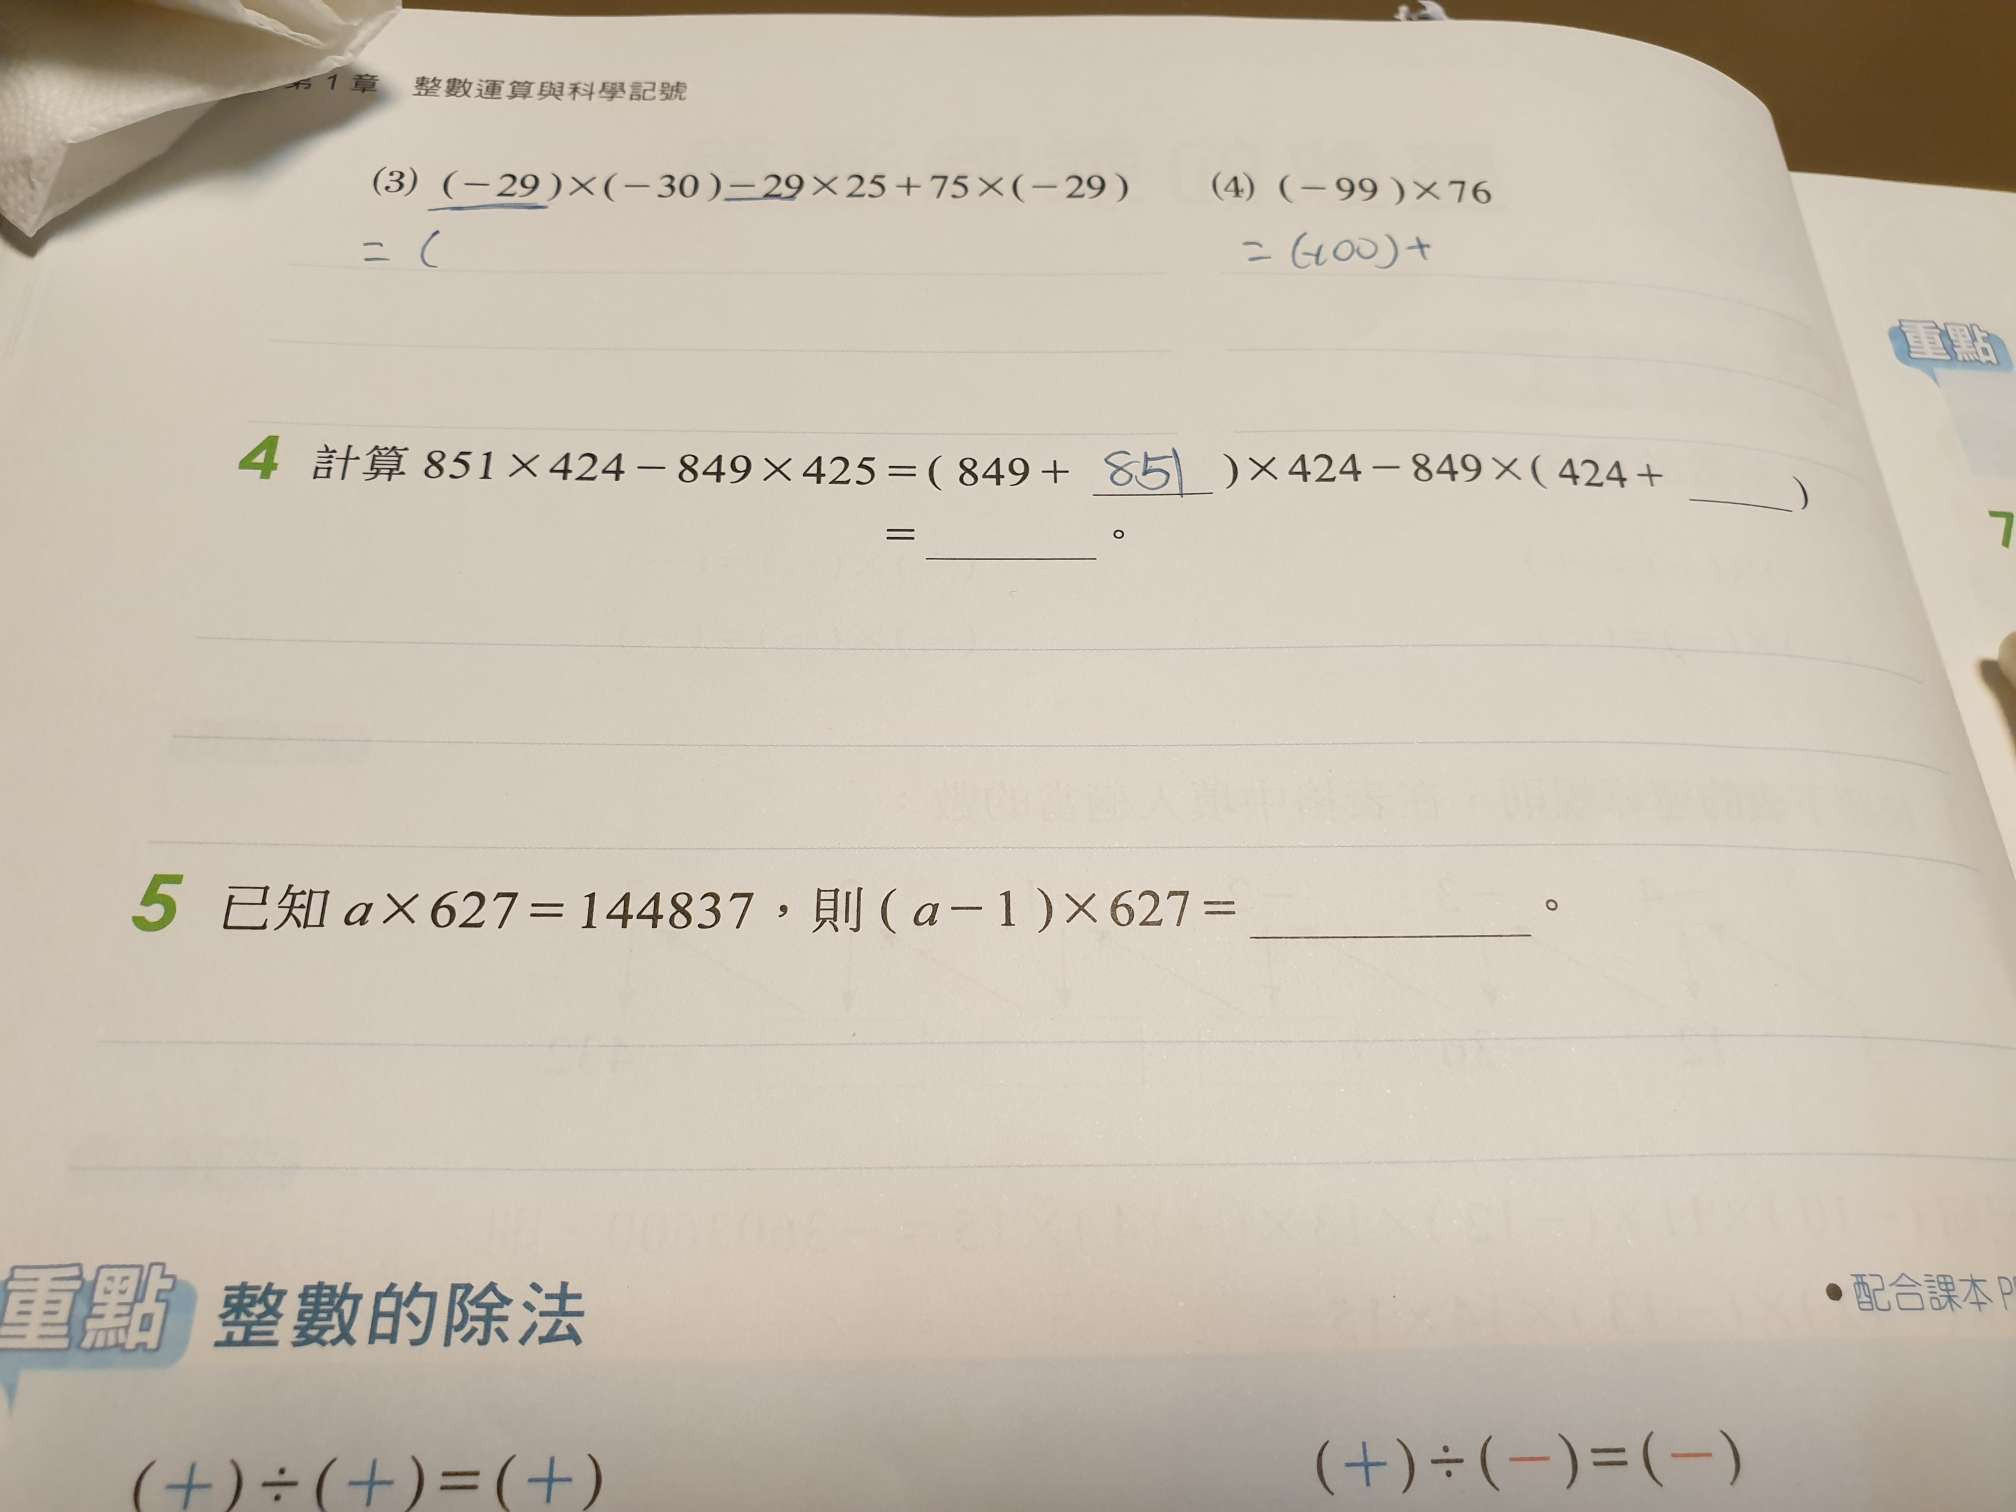 第1章 整數運算與科學記號
(3) (-29)×(-30)-29×25+75×(-29) (4) (-99)×76
= ( = (-100)+
重點
4 計算 851×424-849×425=(849+ 851 )×424-849×(424+ ____)
=____。
7
5 已知 a×627=144837，則(a-1)×627=____。
重點 整數的除法 ●配合課本 P
(+)÷(+)=(+) (+)÷(-)=(-)